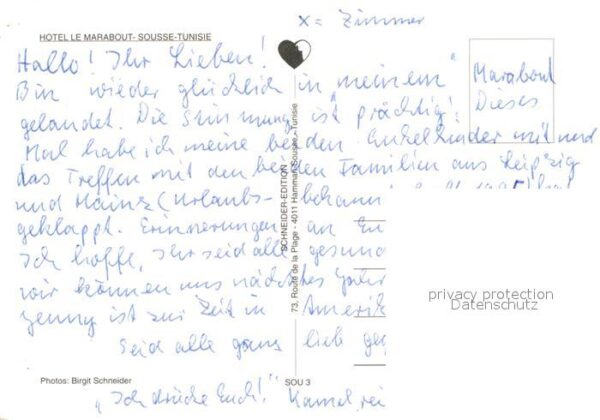 x = Zimmer
HOTEL LE MARABOUT- SOUSSE-TUNISIE
Hallo! Ihr Lieben!
Bin wieder glücklich in "meinem" Marabout
gelandet. Die Stimmung ist "prächtig". Dieses
Mal habe ich meine beiden Enkelkinder mit und
das Treffen mit den beiden Familien aus Leipzig
und Mainz (Urlaubs- bekann
geklappt. Erinnerungen an Eu
Ich hoffe, Ihr seid alle gesund
wir können uns nächstes Jahr
Jenny ist zur Zeit in Amerik
Seid alle ganz lieb geg
"Ich drücke Euch!" Kamel rei
SCHNEIDER-EDITION
73, Route de la Plage - 4011 Hammam Sousse - Tunisie
Photos: Birgit Schneider
SOU 3
privacy protection
Datenschutz